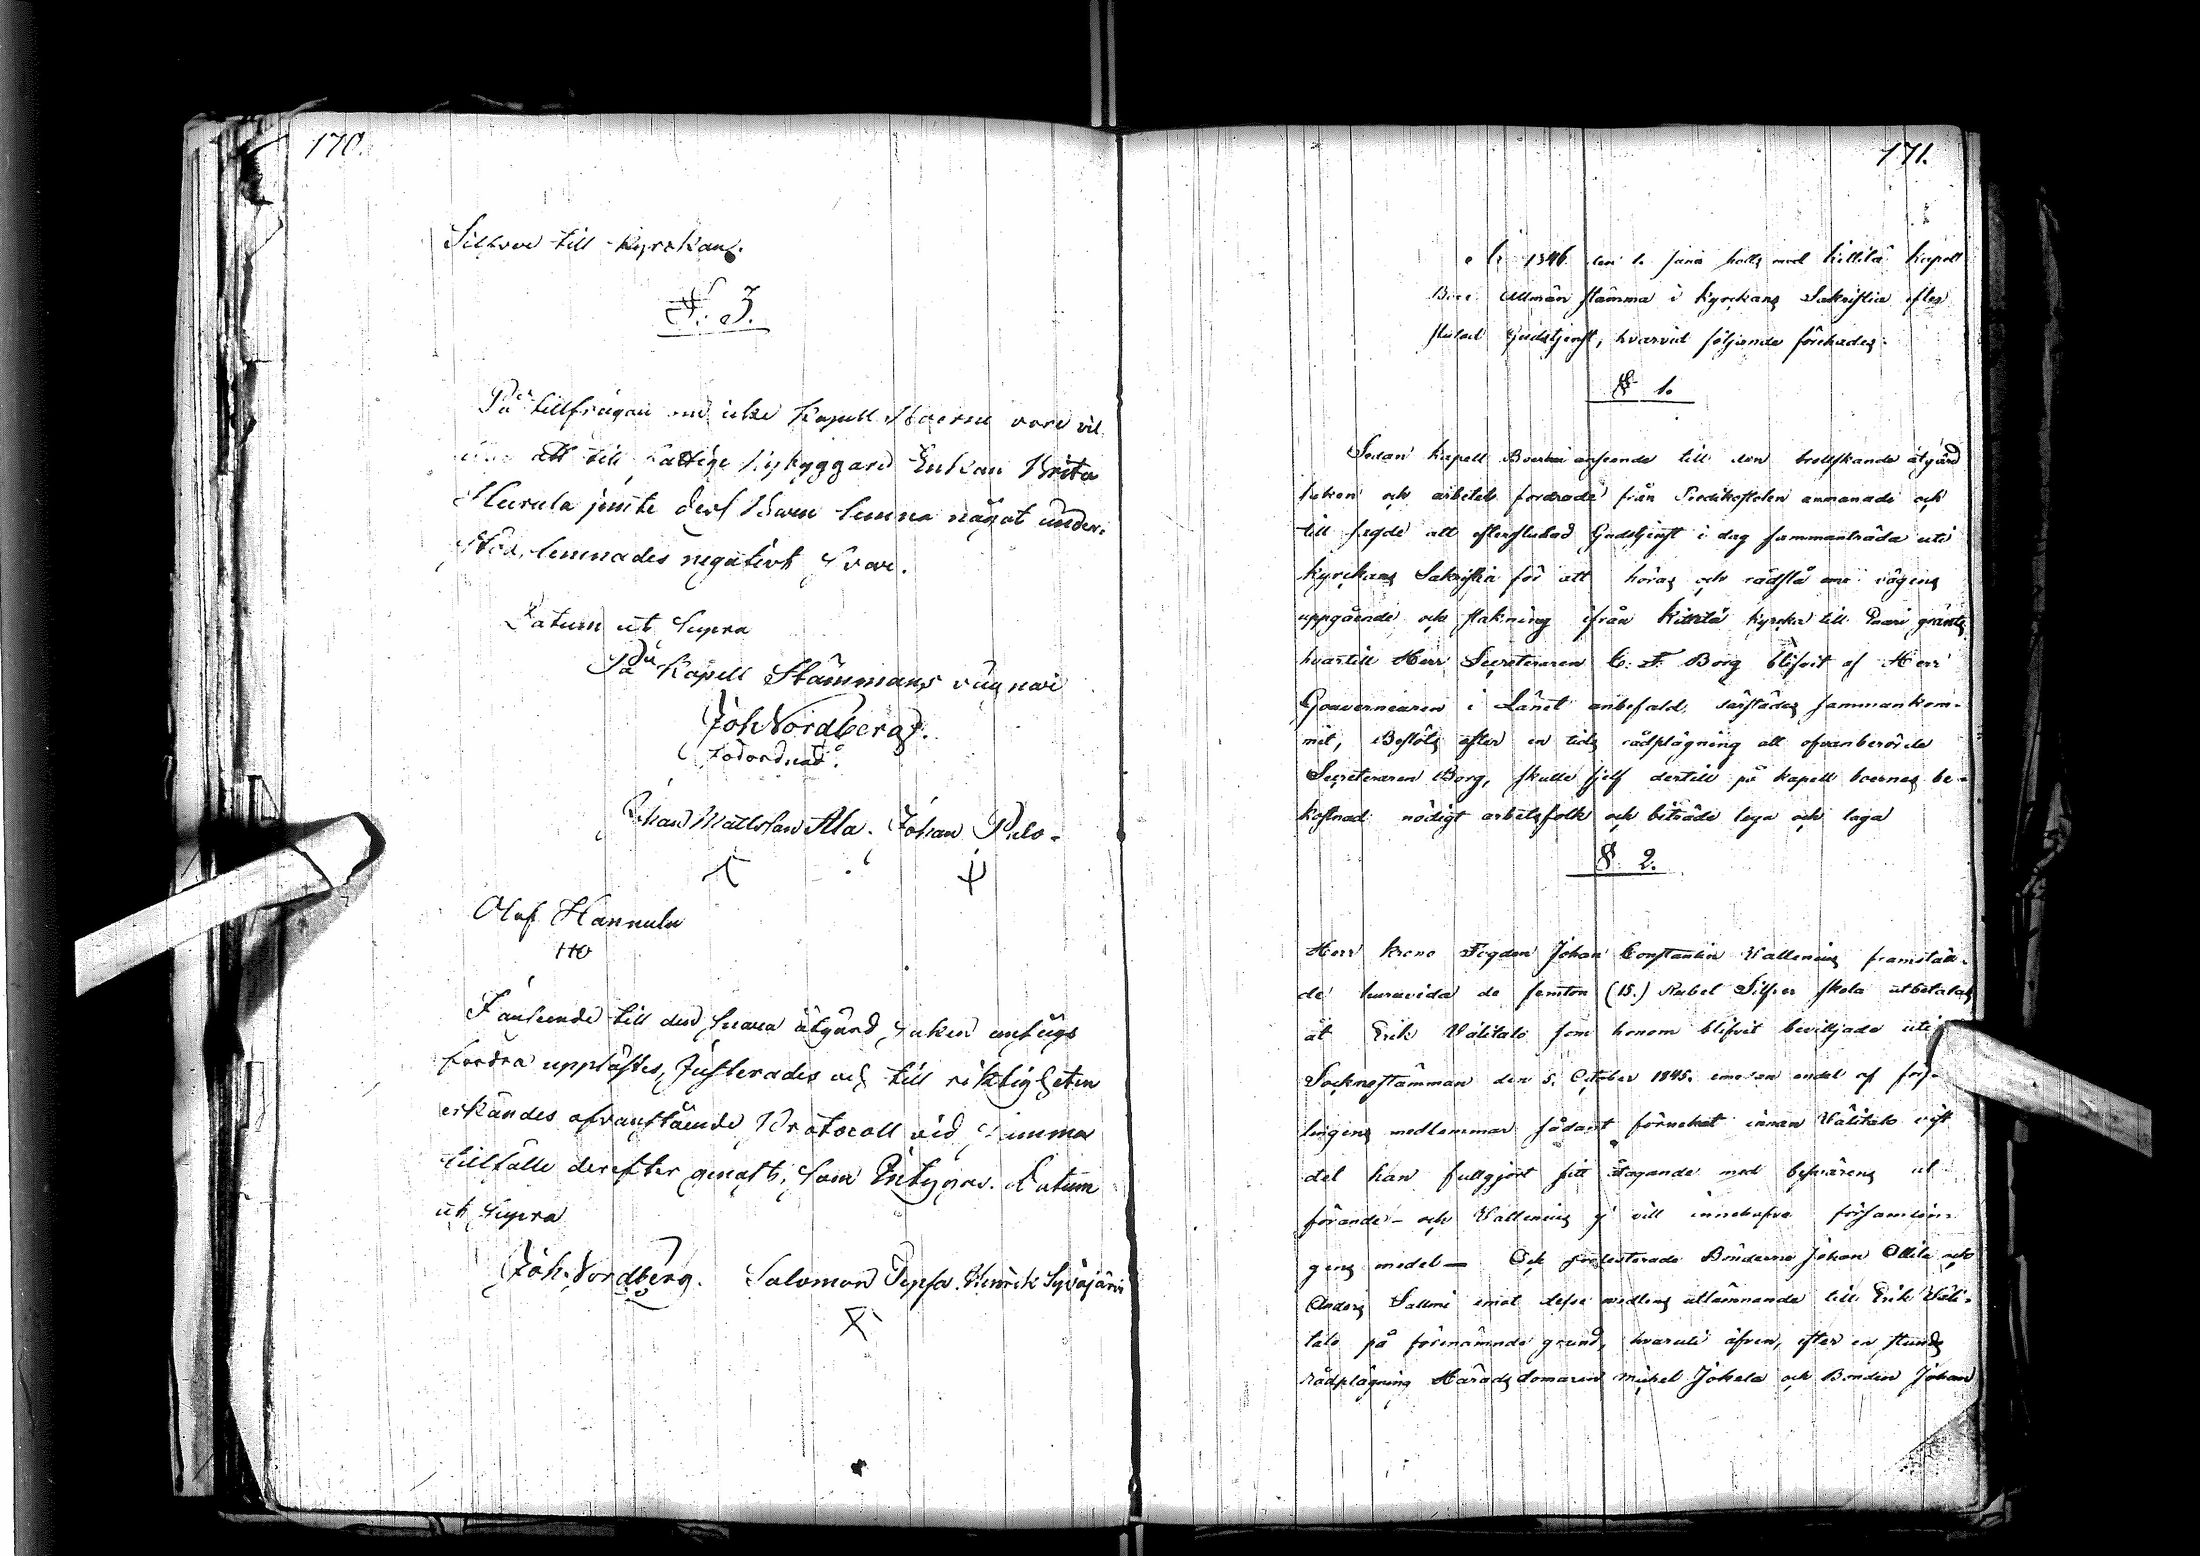 170.
Silfver till Kyrckan.
§. 3.
På tillfrågan om icke Kapell Boerne vore vil
att till fattige Enkan Brita
Hurula jemte dess Barn lemna något under-
stöd, lemnades negativt svar.
Datum ut Supra
På Kapell Stämmans vägnar
Joh Nordberg.
förordnad.
Johan Mattsson Ala. Johan Pulo.
Olof Hannula
HO
I anseende till den snara åtgärd, saken ansågs
fordra upplästes, Justerades och till riktigheten
erkändes ofvanstående Protocoll vid samma
tillfälle derefter genast, som Intygar. Datum
ut Supra
Joh. Nordberg. Salomon Tepsa. Henrik Syväjärvi
171.
År 1846 den 1. Junii hölls med Kittilä Kapell
Boer Allmän stämma i Kyrckans Sakristia efter
slutad Gudstjenst, hvarvid följande förehades.
§ 1.
Sedan Kapell Boerne i anseende till den brådskande åtgärd
saken och arbetet fordrade från Predikostolen anmanade och
till sagde att efter slutad Gudstjenst i dag sammanträda uti
Kyrckans Sakristia för att höras och rådslå om vägens
uppgående och stakning ifrån Kittilä Kyrcka till Enari gränts
hvartill Herr Secreteraren C. F. Borg blifvit af Herr
Gouverneuren i Länet anbefald, härstädes sammankom-
mit, Beslöts efter en tids rådplägning att ofvanberörde
Secreteraren Borg, skulle sjelf dertill på Kapell boernes be-
kostnad nödigt arbetsfolk och biträde lega och taga
§ 2.
Herr Krono Fogden Johan Constantin Wallenius framstäl-
de huruvida de femton (15.) Rubel Silfver skola utbetalas
åt Erik Välitalo som honom blifvit beviljade uti
Socknestämman den 5. October 1845. emedan endel af för-
lingens medlemmar sådant förnekat innan Välitalo vist
det han fullgjort sitt åtagande med besvärens ut
förande - och Wallenius ej vill innehafva församlin-
gens medel — Och protesterade Bönderne Johan Ollila och
Anders Salmi emot desse medlens utlämnande till Erik Väli-
talo på förenämnde grund, hvaruti äfven, efter en stunds
rådplägning Häradsdomaren Mickel Jokela och Bonden Johan